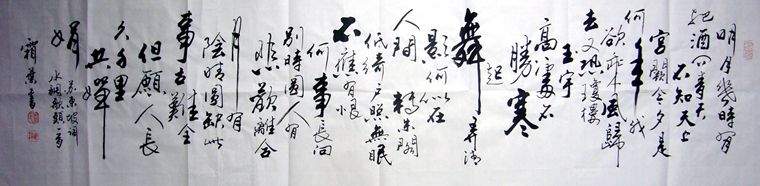 明月幾時有
把酒問青天
不知天上
宮闕今夕是
何年我
欲乘風歸
去又恐瓊樓
玉宇
高處不
勝寒
起
舞弄清
影何似在
人間轉朱閣
低綺戶照無眠
不應有恨
何事長向
別時圓人有
悲歡離合
月有
陰晴圓缺此
事古難全
但願人長
久千里
共嬋
娟
蘇東坡詞
水調歌頭一首
霜葉書